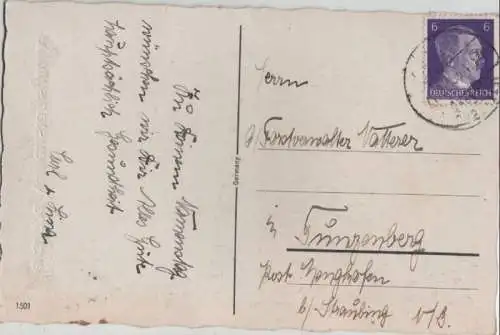 Zu Deinem Namenstag
wünschen wir Dir Alles Gute
hauptsächlich Gesundheit
1501
Germany
6 6
DEUTSCHES REICH
Herrn
Forstverwalter Vatterer
in
Tunzenberg
Post Mengkofen
b/ Straubing N/B.